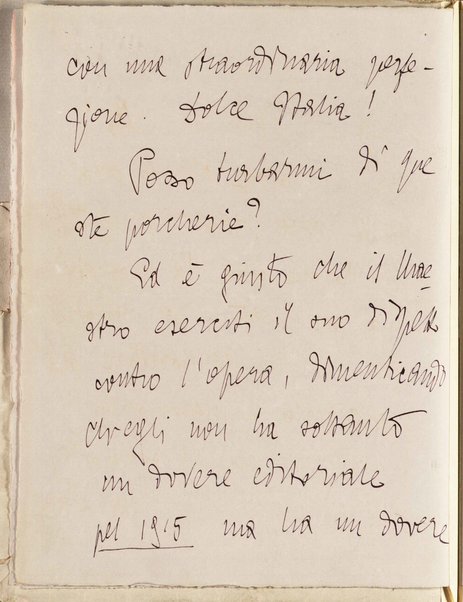 con una straordinaria perfe-
zione. Dolce Italia!
Posso turbarmi di que
ste porcherie?
Ed è giusto che il Mae-
stro eserciti il suo dispetto
contro l'opera, dimenticando
ch'egli non ha soltanto
un dovere editoriale
pel 1915 ma ha un dovere